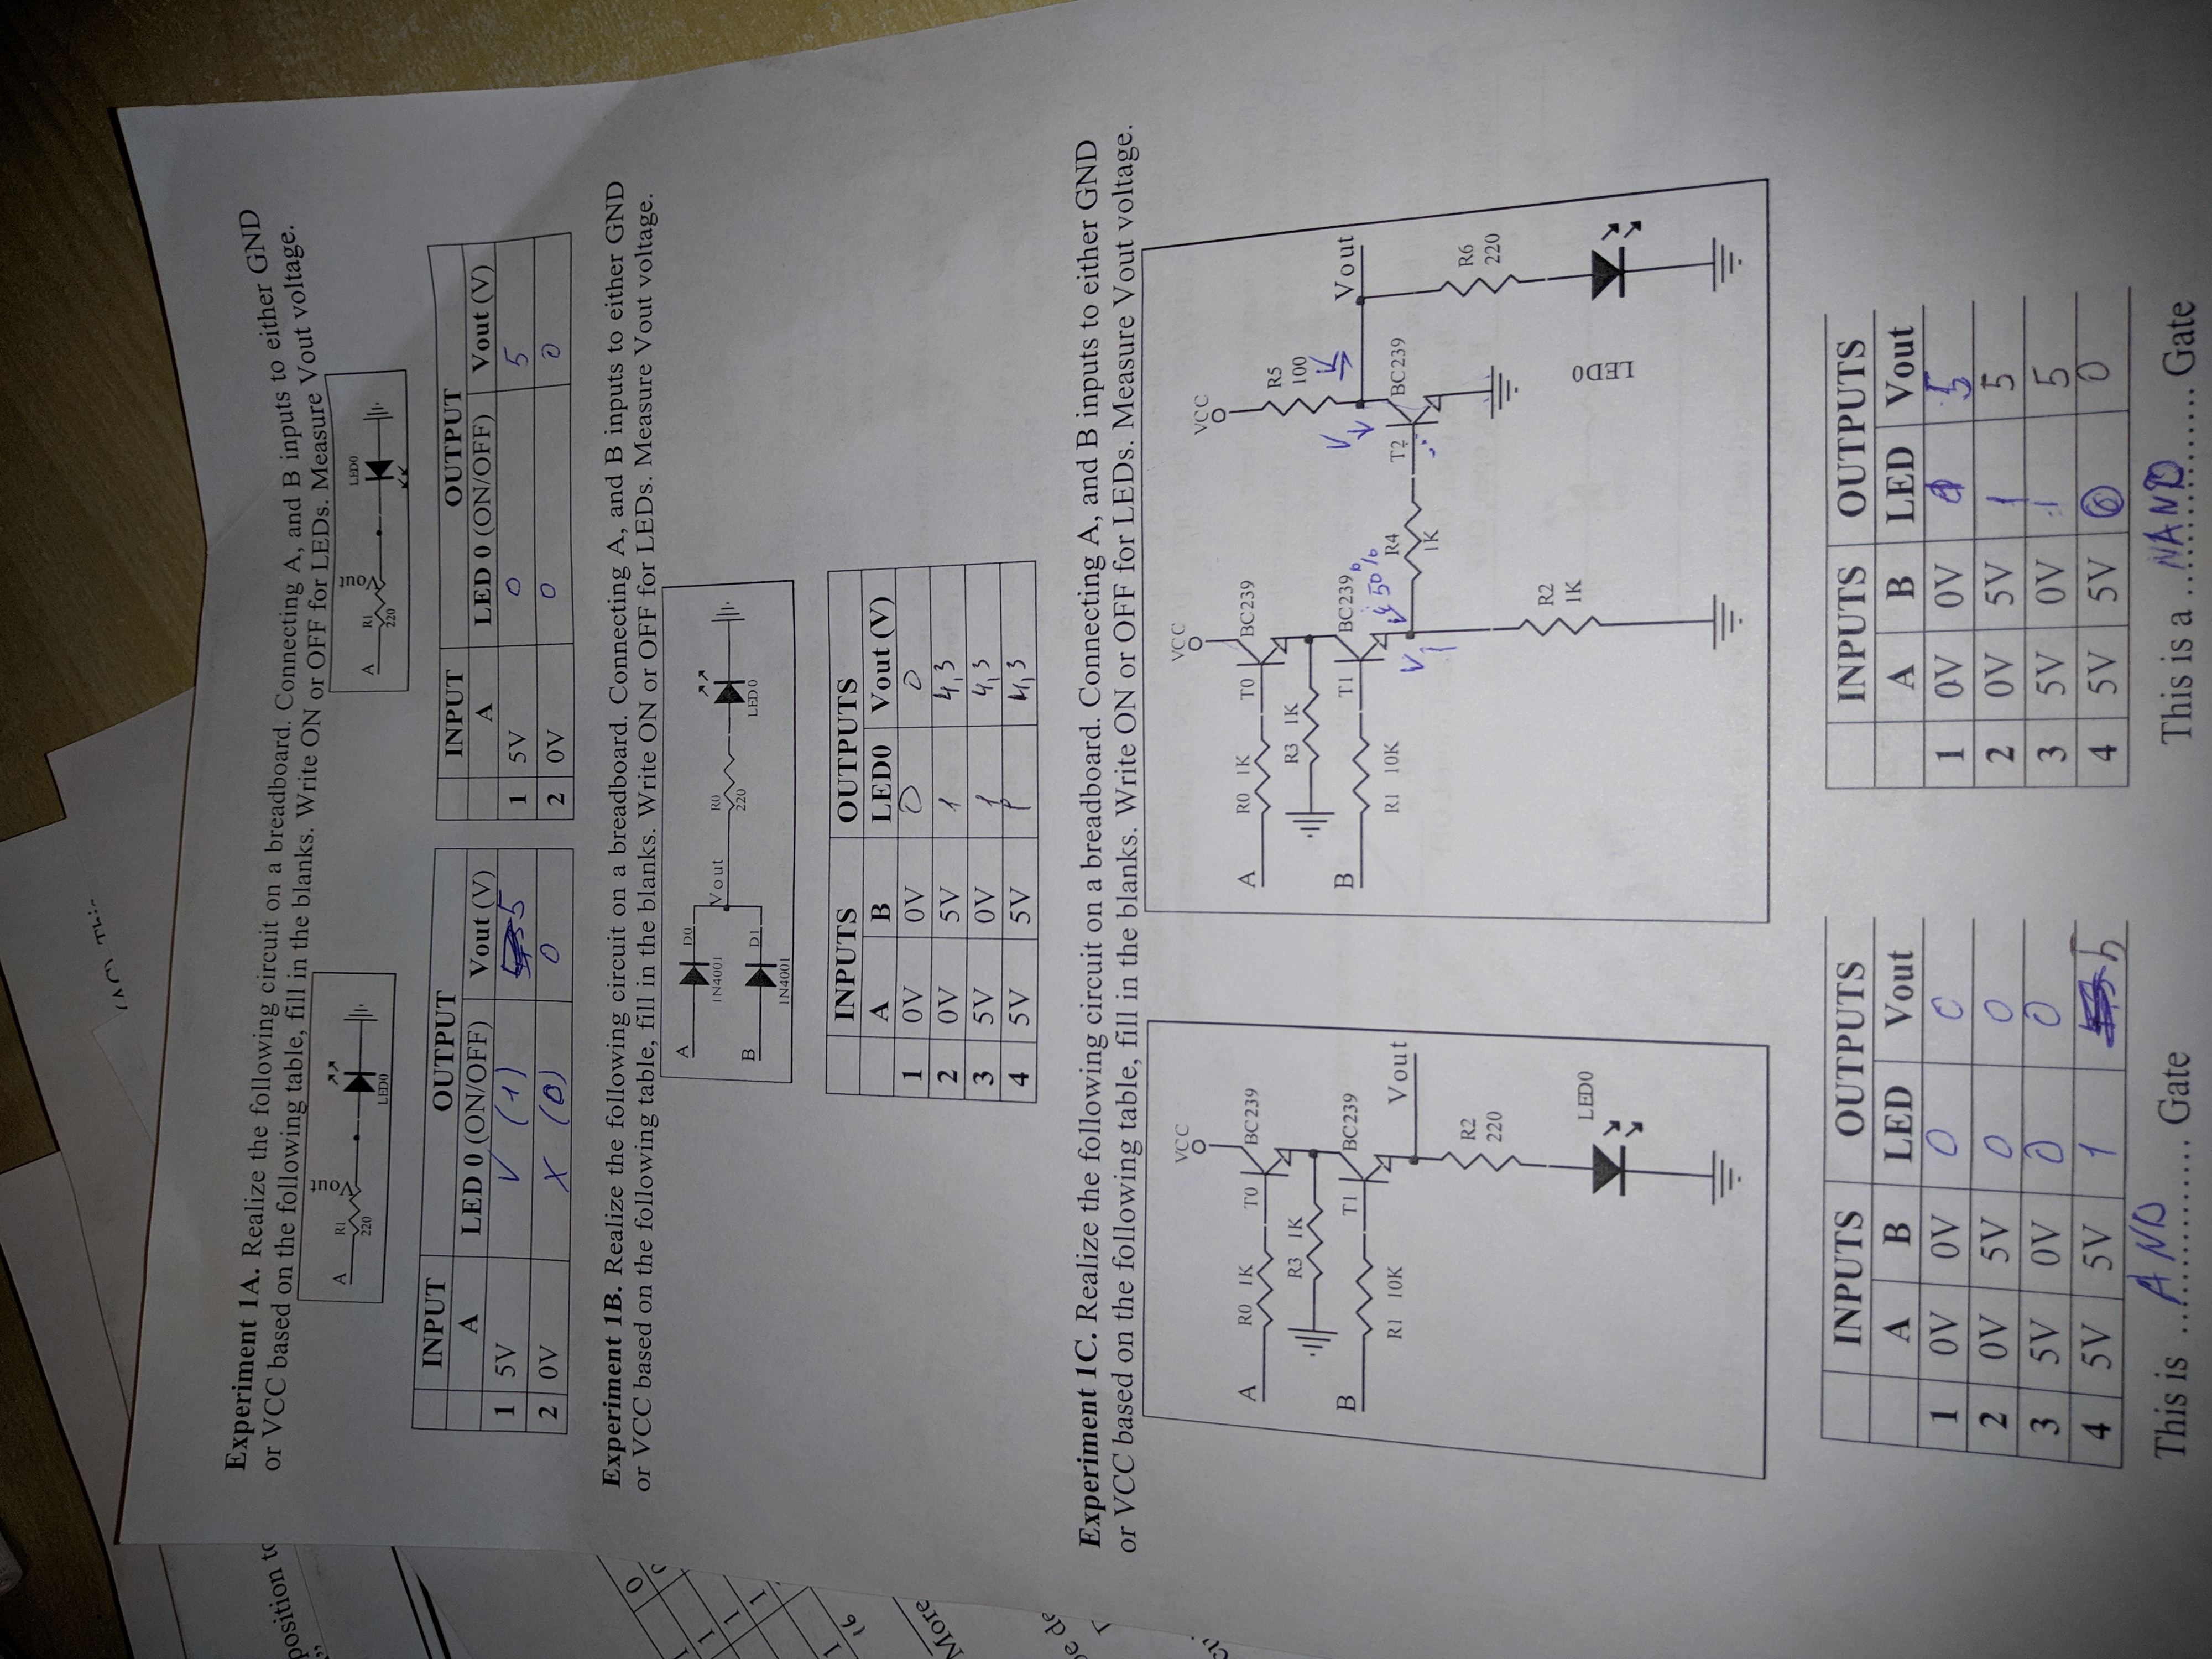 (AC) This
position to
”
0
1
1
1
1
1
16
More
be de
Experiment 1A. Realize the following circuit on a breadboard. Connecting A, and B inputs to either GND
or VCC based on the following table, fill in the blanks. Write ON or OFF for LEDs. Measure Vout voltage.
A R1 220 Vout LED0
A R1 220 Vout LED0
INPUT OUTPUT
A LED 0 (ON/OFF) Vout (V)
1 5V V (1) 5
2 0V X (0) 0
INPUT OUTPUT
A LED 0 (ON/OFF) Vout (V)
1 5V 0 5
2 0V 0 0
Experiment 1B. Realize the following circuit on a breadboard. Connecting A, and B inputs to either GND
or VCC based on the following table, fill in the blanks. Write ON or OFF for LEDs. Measure Vout voltage.
A D0
1N4001 Vout R0
220 LED 0
B D1
1N4001
INPUTS OUTPUTS
A B LED0 Vout (V)
1 0V 0V 0 0
2 0V 5V 1 4,3
3 5V 0V 1 4,3
4 5V 5V 1 4,3
Experiment 1C. Realize the following circuit on a breadboard. Connecting A, and B inputs to either GND
or VCC based on the following table, fill in the blanks. Write ON or OFF for LEDs. Measure Vout voltage.
VCC
A R0 1K T0 BC239
R3 1K
B T1 BC239
R1 10K Vout
R2
220
LED0
VCC
VCC
A R0 1K T0 BC239
R3 1K R5
100
B T1 BC239 V Vout
R1 10K 50% R4 T2 BC239
V 1K
R6
220
R2
1K
LED0
INPUTS OUTPUTS
A B LED Vout
1 0V 0V 0 0
2 0V 5V 0 0
3 5V 0V 0 0
4 5V 5V 1 5
This is .. AND .. Gate
INPUTS OUTPUTS
A B LED Vout
1 0V 0V 1 5
2 0V 5V 1 5
3 5V 0V 1 5
4 5V 5V 0 0
This is a .. NAND .. Gate